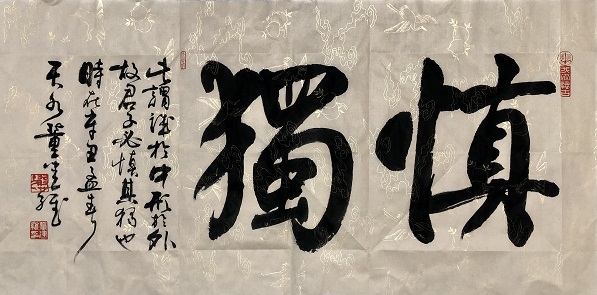 慎獨
此謂誠於中形於外
故君子必慎其獨也
時在辛丑孟春
天水